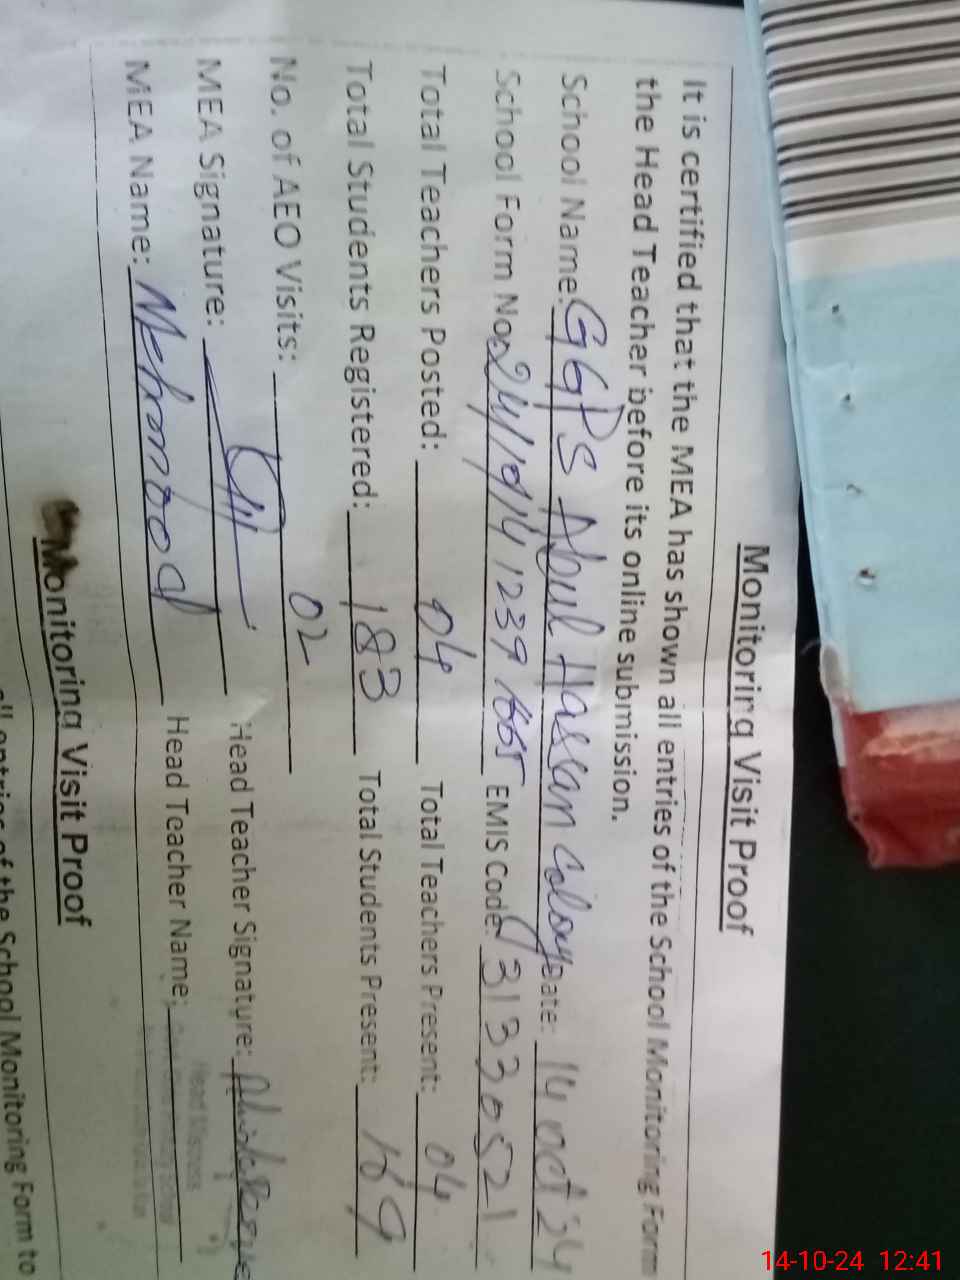 Monitoring Visit Proof
It is certified that the MEA has shown all entries of the School Monitoring Form
the Head Teacher before its online submission.
School Name: GGPS Abul Hassan Colony Date: 14 Oct 24
School Form No: EMIS Code: 31330521
Total Teachers Posted: 04 Total Teachers Present: 04
Total Students Registered: 183 Total Students Present: 169
No. of AEO Visits: 02
MEA Signature: Head Teacher Signature:
MEA Name: Mehmood Head Teacher Name:
Head Mistress
Monitoring Visit Proof
entries of the School Monitoring Form to
14-10-24 12:41